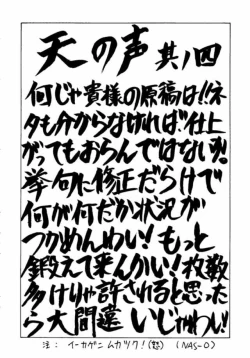 天の声 其ノ四
何じゃ貴様の原稿は!!ネ
タも分からなければ仕上
がってもおらんではないか!!
挙句に修正だらけで
何が何だか状況が
つかめんわい! もっと
鍛えて来んかい! 枚数
多けりゃ許されると思った
ら大間違いじゃわい!
注: イーカゲンムカツク!(怒) (NAS-O)